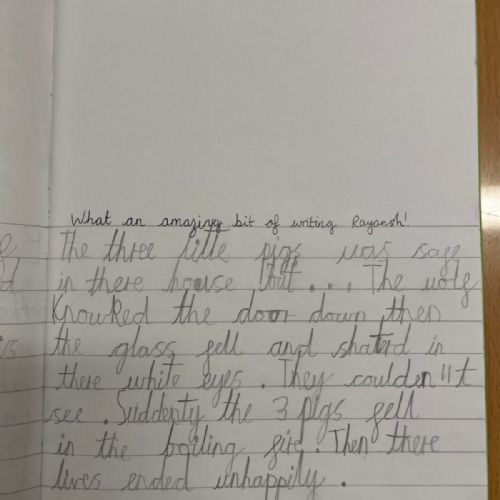 What an amazing bit of writing Rayansh!
The three little pigs was safe
in there house but... The wolf
Knowked the door down then
the glass fell and shaterd in
there white eyes. They coulden"t
see. Suddenty the 3 pigs fell
in the boiling fire. Then there
lives ended unhappily.